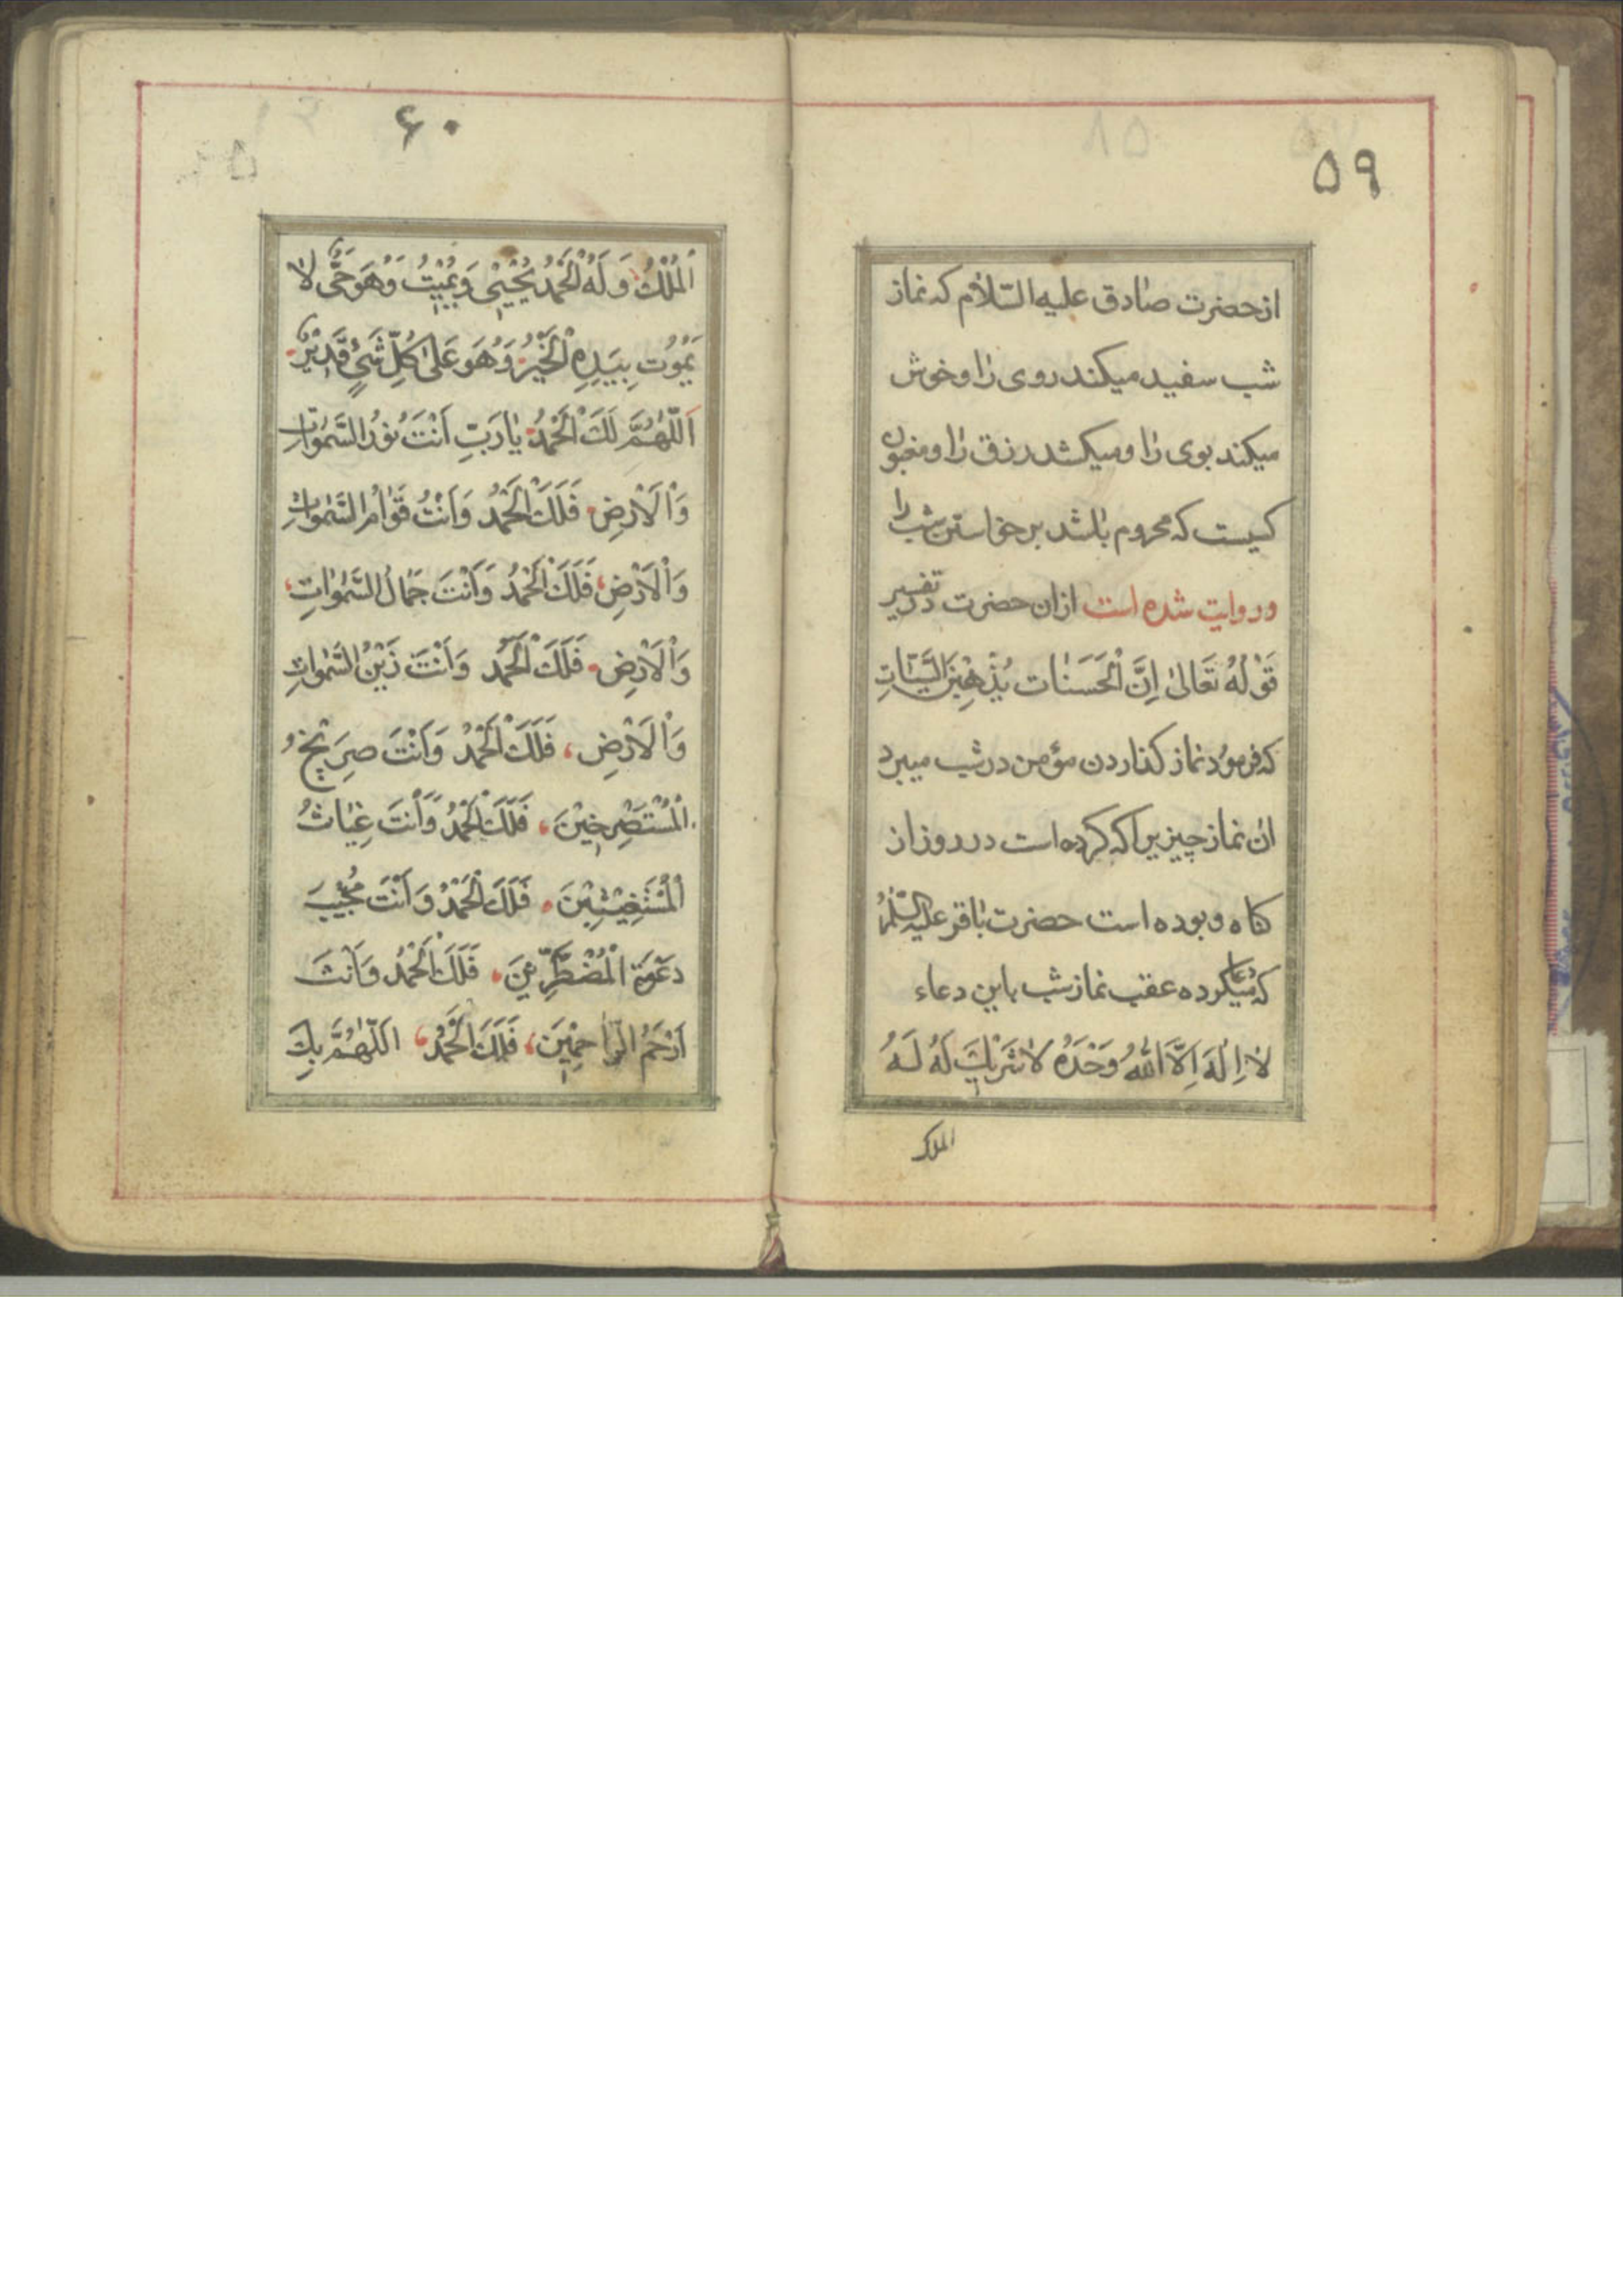 ۵۹
از حضرت صادق علیه السّلام که نماز
شب سفید میکند روی را و خوش
میکند بوی را و میکشد رزق را و مغبون
کسیست که محروم باشد برخواستن شب را
و روایت شده است ازان حضرت در تفسیر
قَوْلُهُ تَعَالیٰ اِنَّ الْحَسَنَات یُذْهِبْنَ السَّیِّئَاتِ
که فرمود نماز کذاردن مؤمن در شب میبرد
ان نماز چیزیرا که کرده است در روز از
کناه و بوده است حضرت باقر علیه السّلام
که دعا میکرده عقب نماز شب باین دعاء
لا اِلٰهَ اِلَّا اللّٰهُ وَحْدَهُ لا شَرِیْكَ لَهُ لَهُ
الملک
۶۰
اَلْمُلْكُ وَ لَهُ الْحَمْدُ یُحْیِیْ وَ یُمِیْتُ وَ هُوَ حَیٌّ لا
یَمُوْتُ بِیَدِهِ الْخَیْرُ وَ هُوَ عَلیٰ کُلِّ شَیْءٍ قَدِیْرٌ
اَللّٰهُمَّ لَكَ الْحَمْدُ یا رَبِّ اَنْتَ نُوْرُ السَّمٰوَاتِ
وَ الْاَرْضِ فَلَكَ الْحَمْدُ وَ اَنْتَ قَوّامُ السَّمٰوَاتِ
وَ الْاَرْضِ فَلَكَ الْحَمْدُ وَ اَنْتَ جَمَالُ السَّمٰوَاتِ
وَ الْاَرْضِ فَلَكَ الْحَمْدُ وَ اَنْتَ زَیْنُ السَّمٰوَاتِ
وَ الْاَرْضِ، فَلَكَ الْحَمْدُ وَ اَنْتَ صِرَیْخُ
الْمُسْتَصْرِخِیْنَ، فَلَكَ الْحَمْدُ وَ اَنْتَ غِیَاثُ
الْمُسْتَغِیْثِیْنَ فَلَكَ الْحَمْدُ وَ اَنْتَ مُجِیْبَ
دَعْوَةِ الْمُضْطَرِّیْنَ فَلَكَ الْحَمْدُ وَ اَنْتَ
اَرْحَمُ الرّاحِمِیْنَ، فَلَكَ الْحَمْدُ، اَللّٰهُمَّ بِكَ